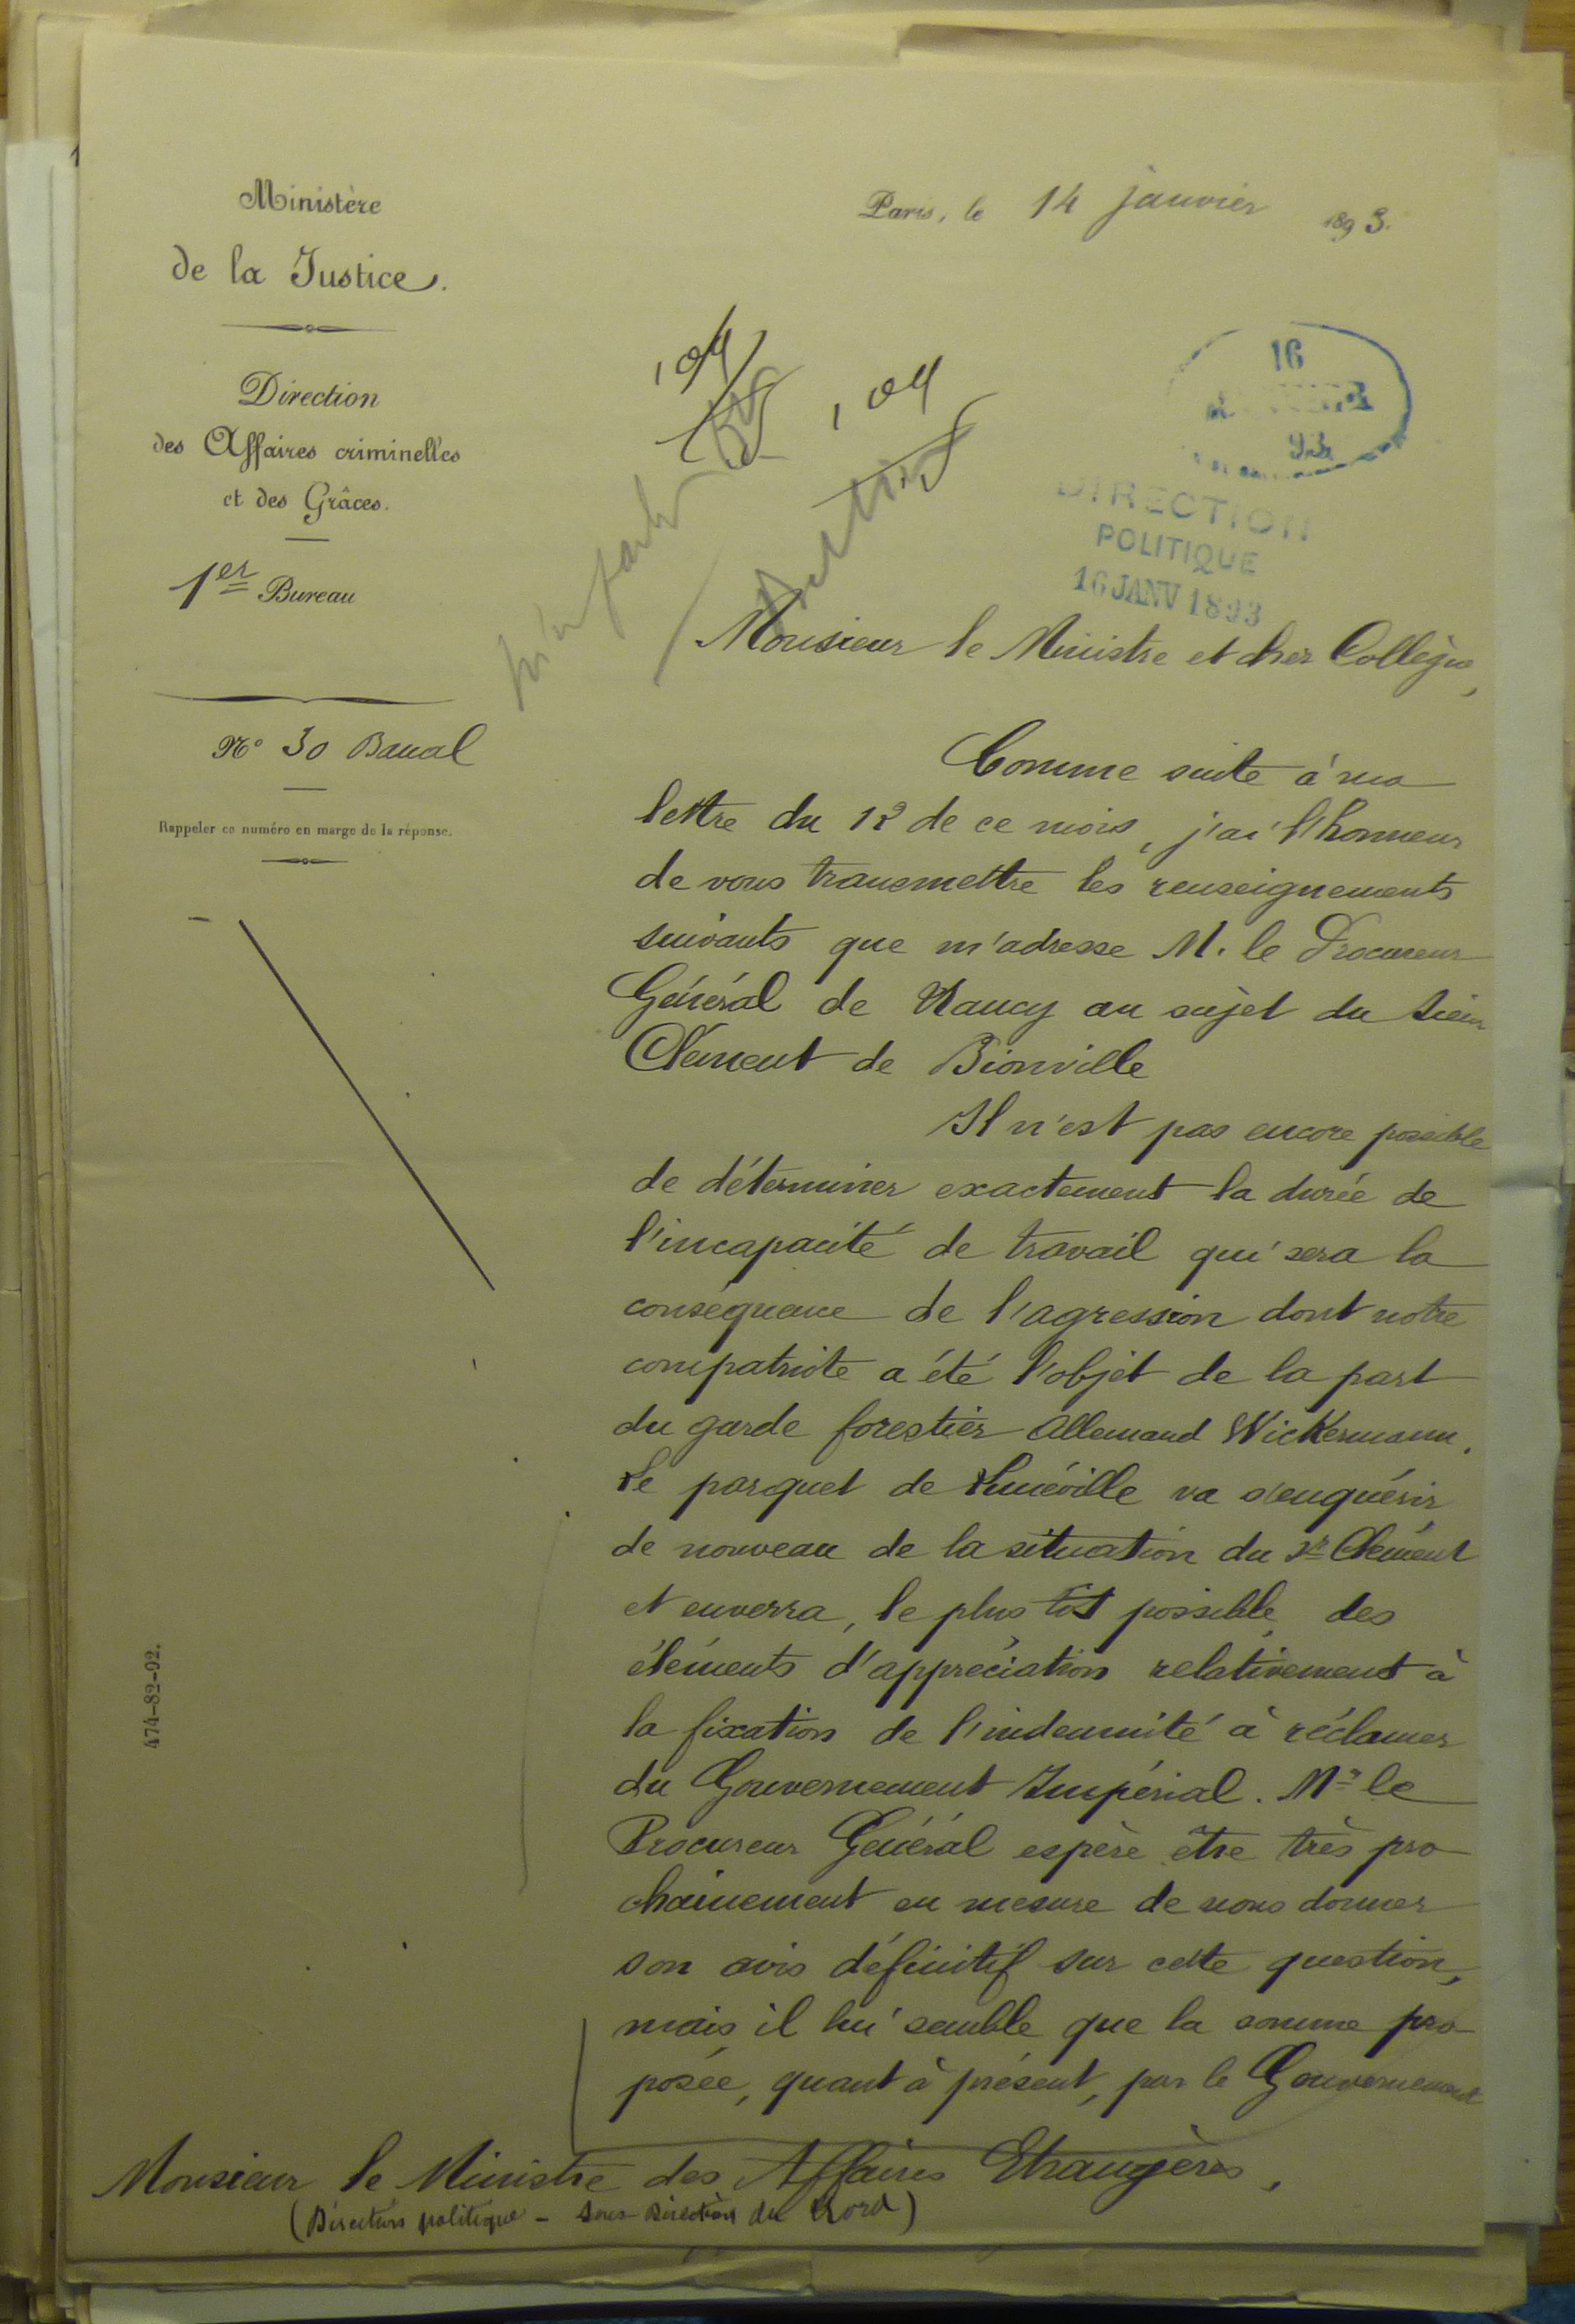 Ministère
de la Justice.
Direction
des Affaires criminelles
et des Grâces.
1er Bureau
N° 30 Banal
Rappeler ce numéro en marge de la réponse.
474-82-92.
Paris, le 14 janvier 1893.
16
93
DIRECTION
POLITIQUE
16 JANV 1893
Monsieur le Ministre et cher Collègue,
Comme suite à ma
lettre du 12 de ce mois, j'ai l'honneur
de vous transmettre les renseignements
suivants que m'adresse M. le Procureur
Général de Nancy au sujet du sieur
Clément de Bionville
Il n'est pas encore possible
de déterminer exactement la durée de
l'incapacité de travail qui sera la
conséquence de l'agression dont notre
compatriote a été l'objet de la part
du garde forestier allemand Wickermann.
Le parquet de Lunéville va s'enquérir
de nouveau de la situation du Sr Clément
et enverra, le plus tôt possible, des
éléments d'appréciation relativement à
la fixation de l'indemnité à réclamer
du Gouvernement Impérial. Mr le
Procureur Général espère être très pro
chainement en mesure de nous donner
son avis définitif sur cette question,
mais il lui semble que la somme pro
posée, quant à présent, par le Gouvernement
Monsieur le Ministre des Affaires Etrangères,
(Direction politique - Sous Direction du Nord)